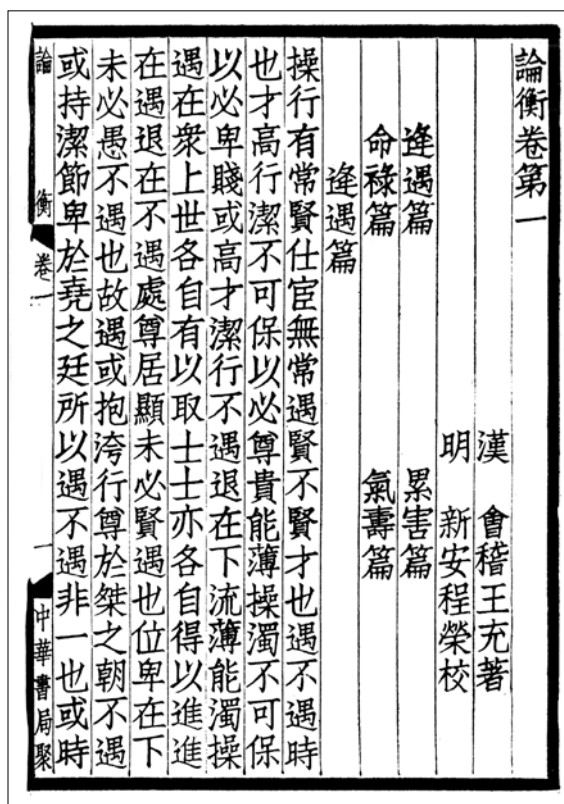 論衡卷第一
漢　會稽王充著
明　新安程榮校
逢遇篇　累害篇
命祿篇　氣壽篇
逢遇篇
操行有常賢仕宦無常遇賢不賢才也遇不遇時
也才高行潔不可保以必尊貴能薄操濁不可保
以必卑賤或高才潔行不遇退在下流薄能濁操
遇在衆上世各自有以取士士亦各自得以進進
在遇退在不遇處尊居顯未必賢遇也位卑在下
未必愚不遇也故遇或抱洿行尊於桀之朝不遇
或持潔節卑於堯之廷所以遇不遇非一也或時
論　衡　卷一　一　中華書局聚